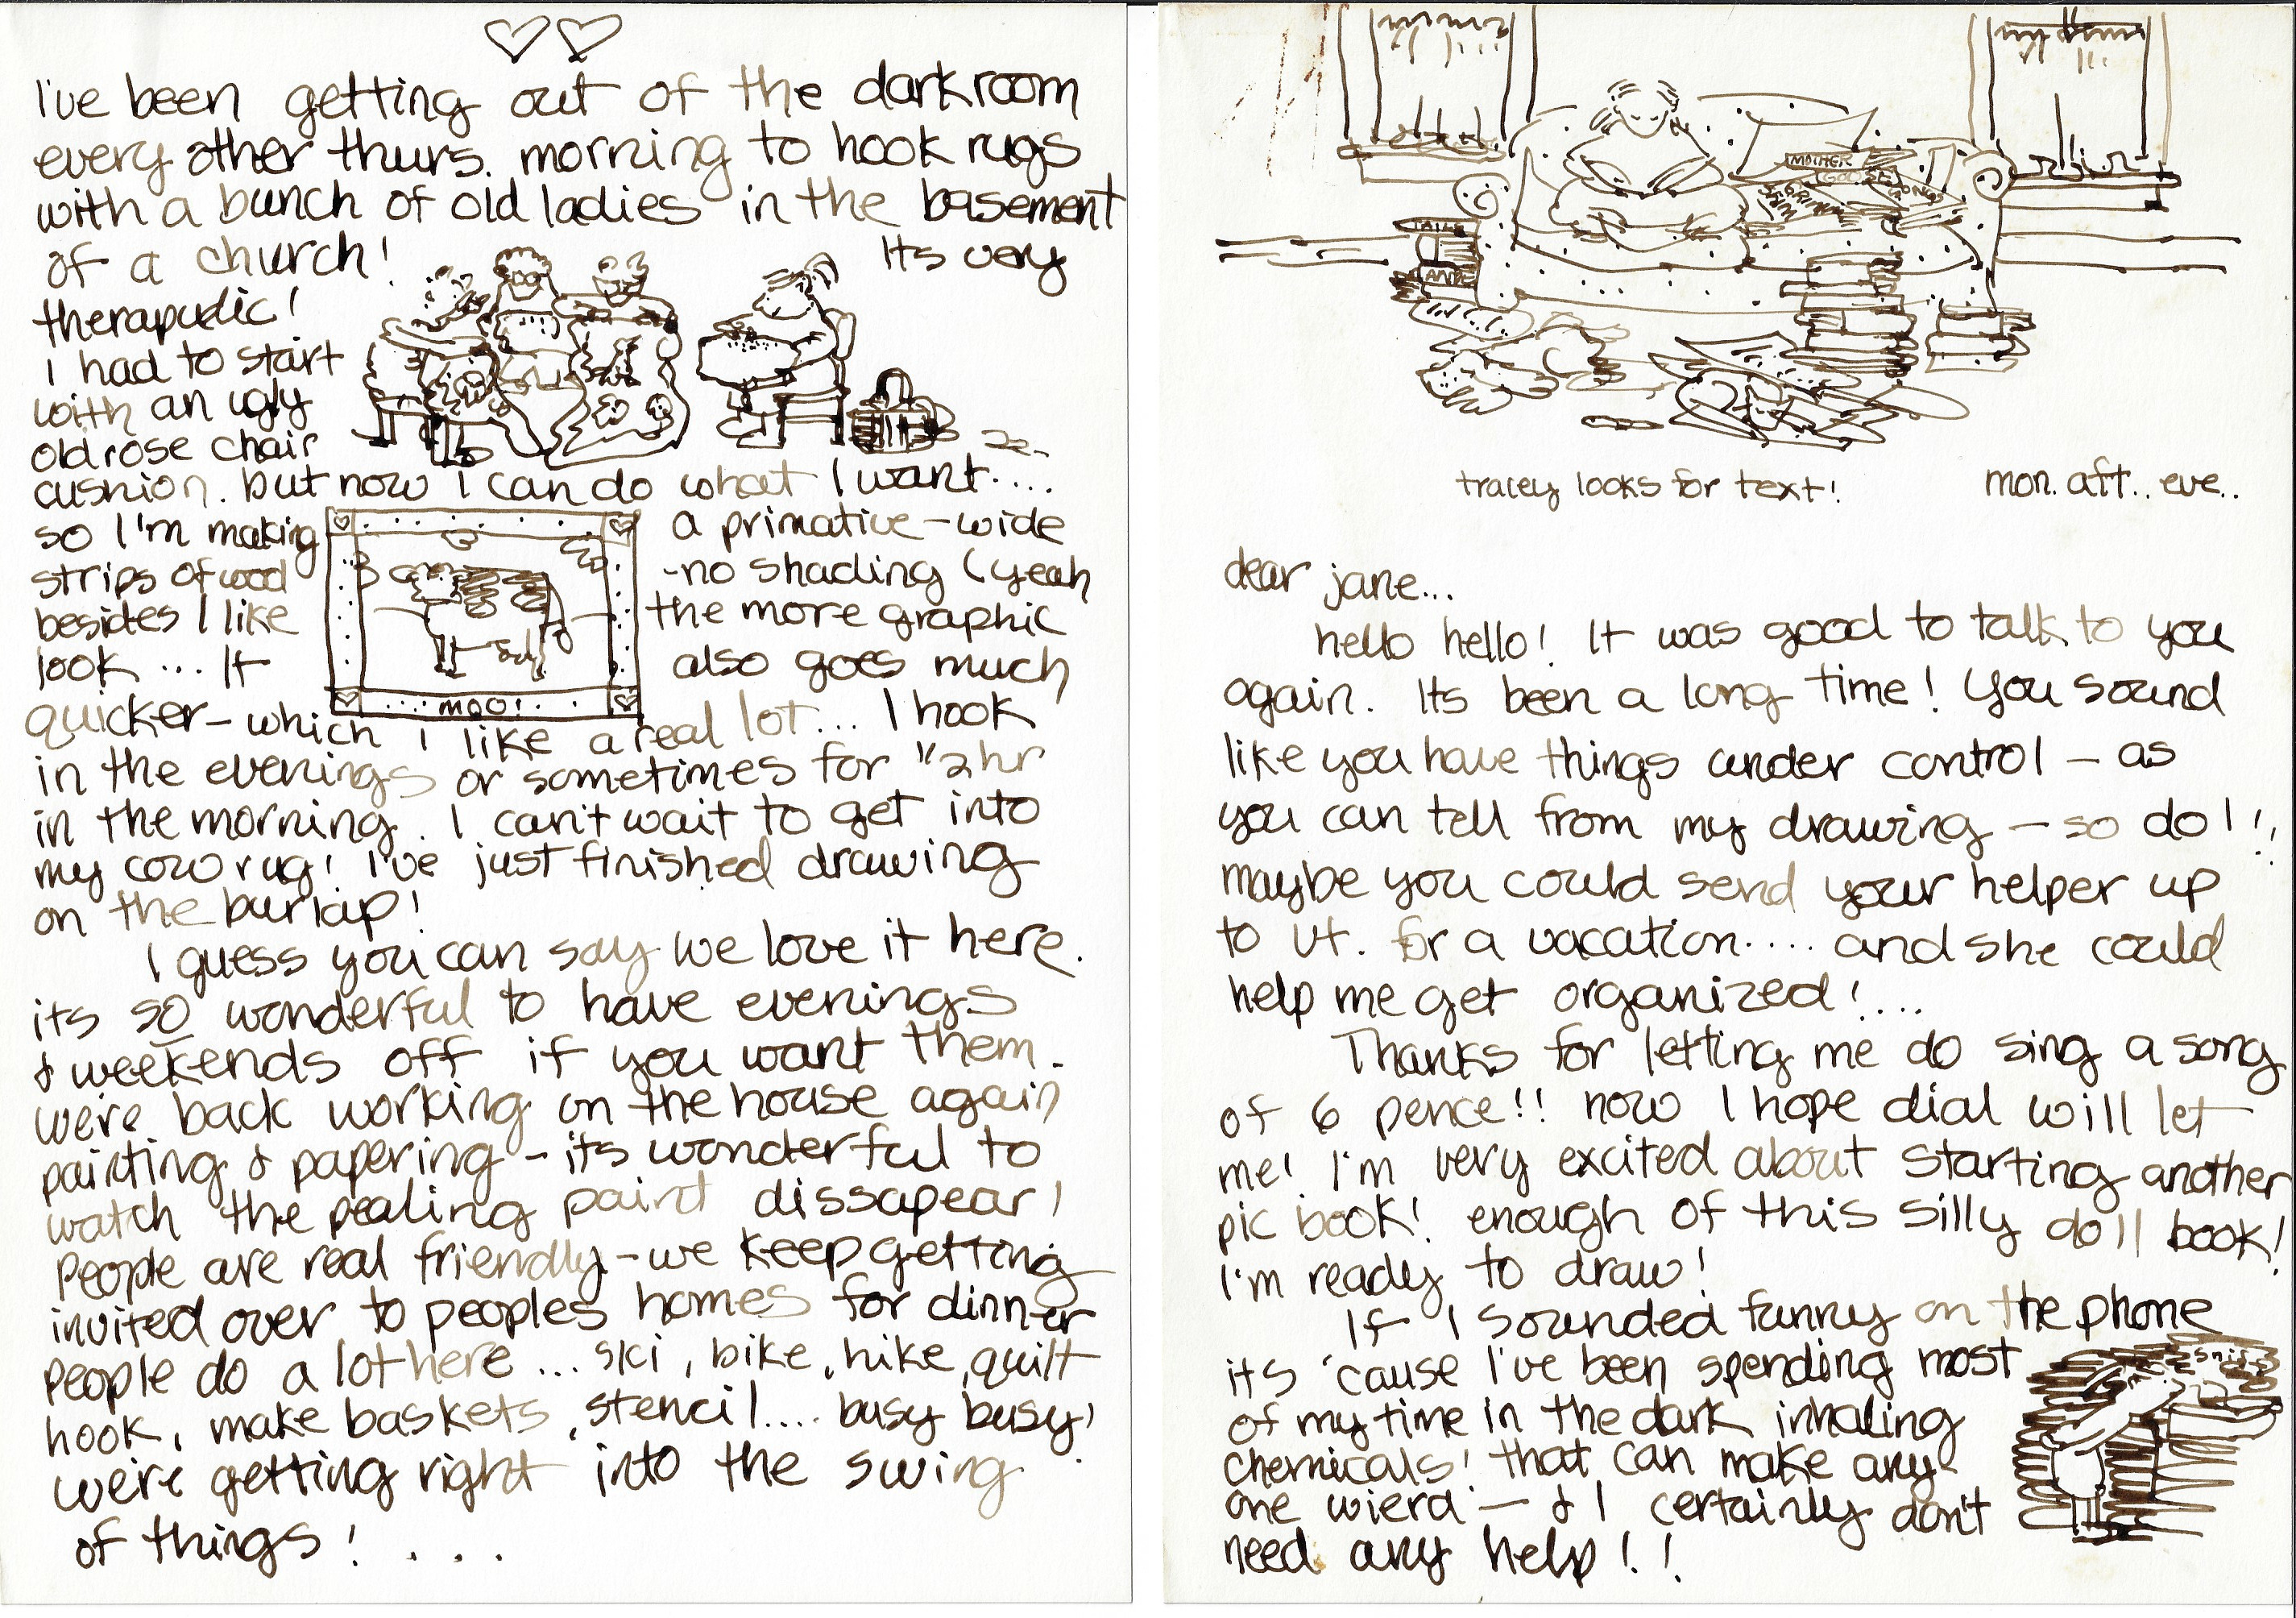 I've been getting out of the darkroom
every other thurs. morning to hook rugs
with a bunch of old ladies in the basement
of a church! Its very
therapudic!
I had to start
with an ugly
old rose chair
cushion. but now I can do what I want....
so I'm making a primative - wide
strips of wool - no shading (yeah
besides I like the more graphic
look ... It also goes much
moo!
quicker - which I like a real lot... I hook
in the evenings or sometimes for 1/2 hr
in the morning. I can't wait to get into
my cow rug! I've just finished drawing
on the burlap!
I guess you can say we love it here.
its so wonderful to have evenings
& weekends off if you want them.
we're back working on the house again
painting & papering - its wonderful to
watch the pealing paint dissapear!
People are real friendly - we keep getting
invited over to peoples homes for dinner
people do a lot here... ski, bike, hike, quilt
hook, make baskets, stencil.... busy busy!
we're getting right into the swing
of things! ...
MOTHER
GOOSE
SONG
GRIMM
tracey looks for text! mon. aft.. eve..
dear jane...
hello hello! It was good to talk to you
again. Its been a long time! You sound
like you have things under control - as
you can tell from my drawing - so do I!!
maybe you could send your helper up
to vt. for a vacation.... and she could
help me get organized!....
Thanks for letting me do sing a song
of 6 pence!! now I hope dial will let
me! I'm very excited about starting another
pic book! enough of this silly doll book!
I'm ready to draw!
If I sounded funny on the phone
its 'cause I've been spending most
sniff
of my time in the dark inhaling
chemicals! that can make any-
one wierd - & I certainly don't
need any help!!